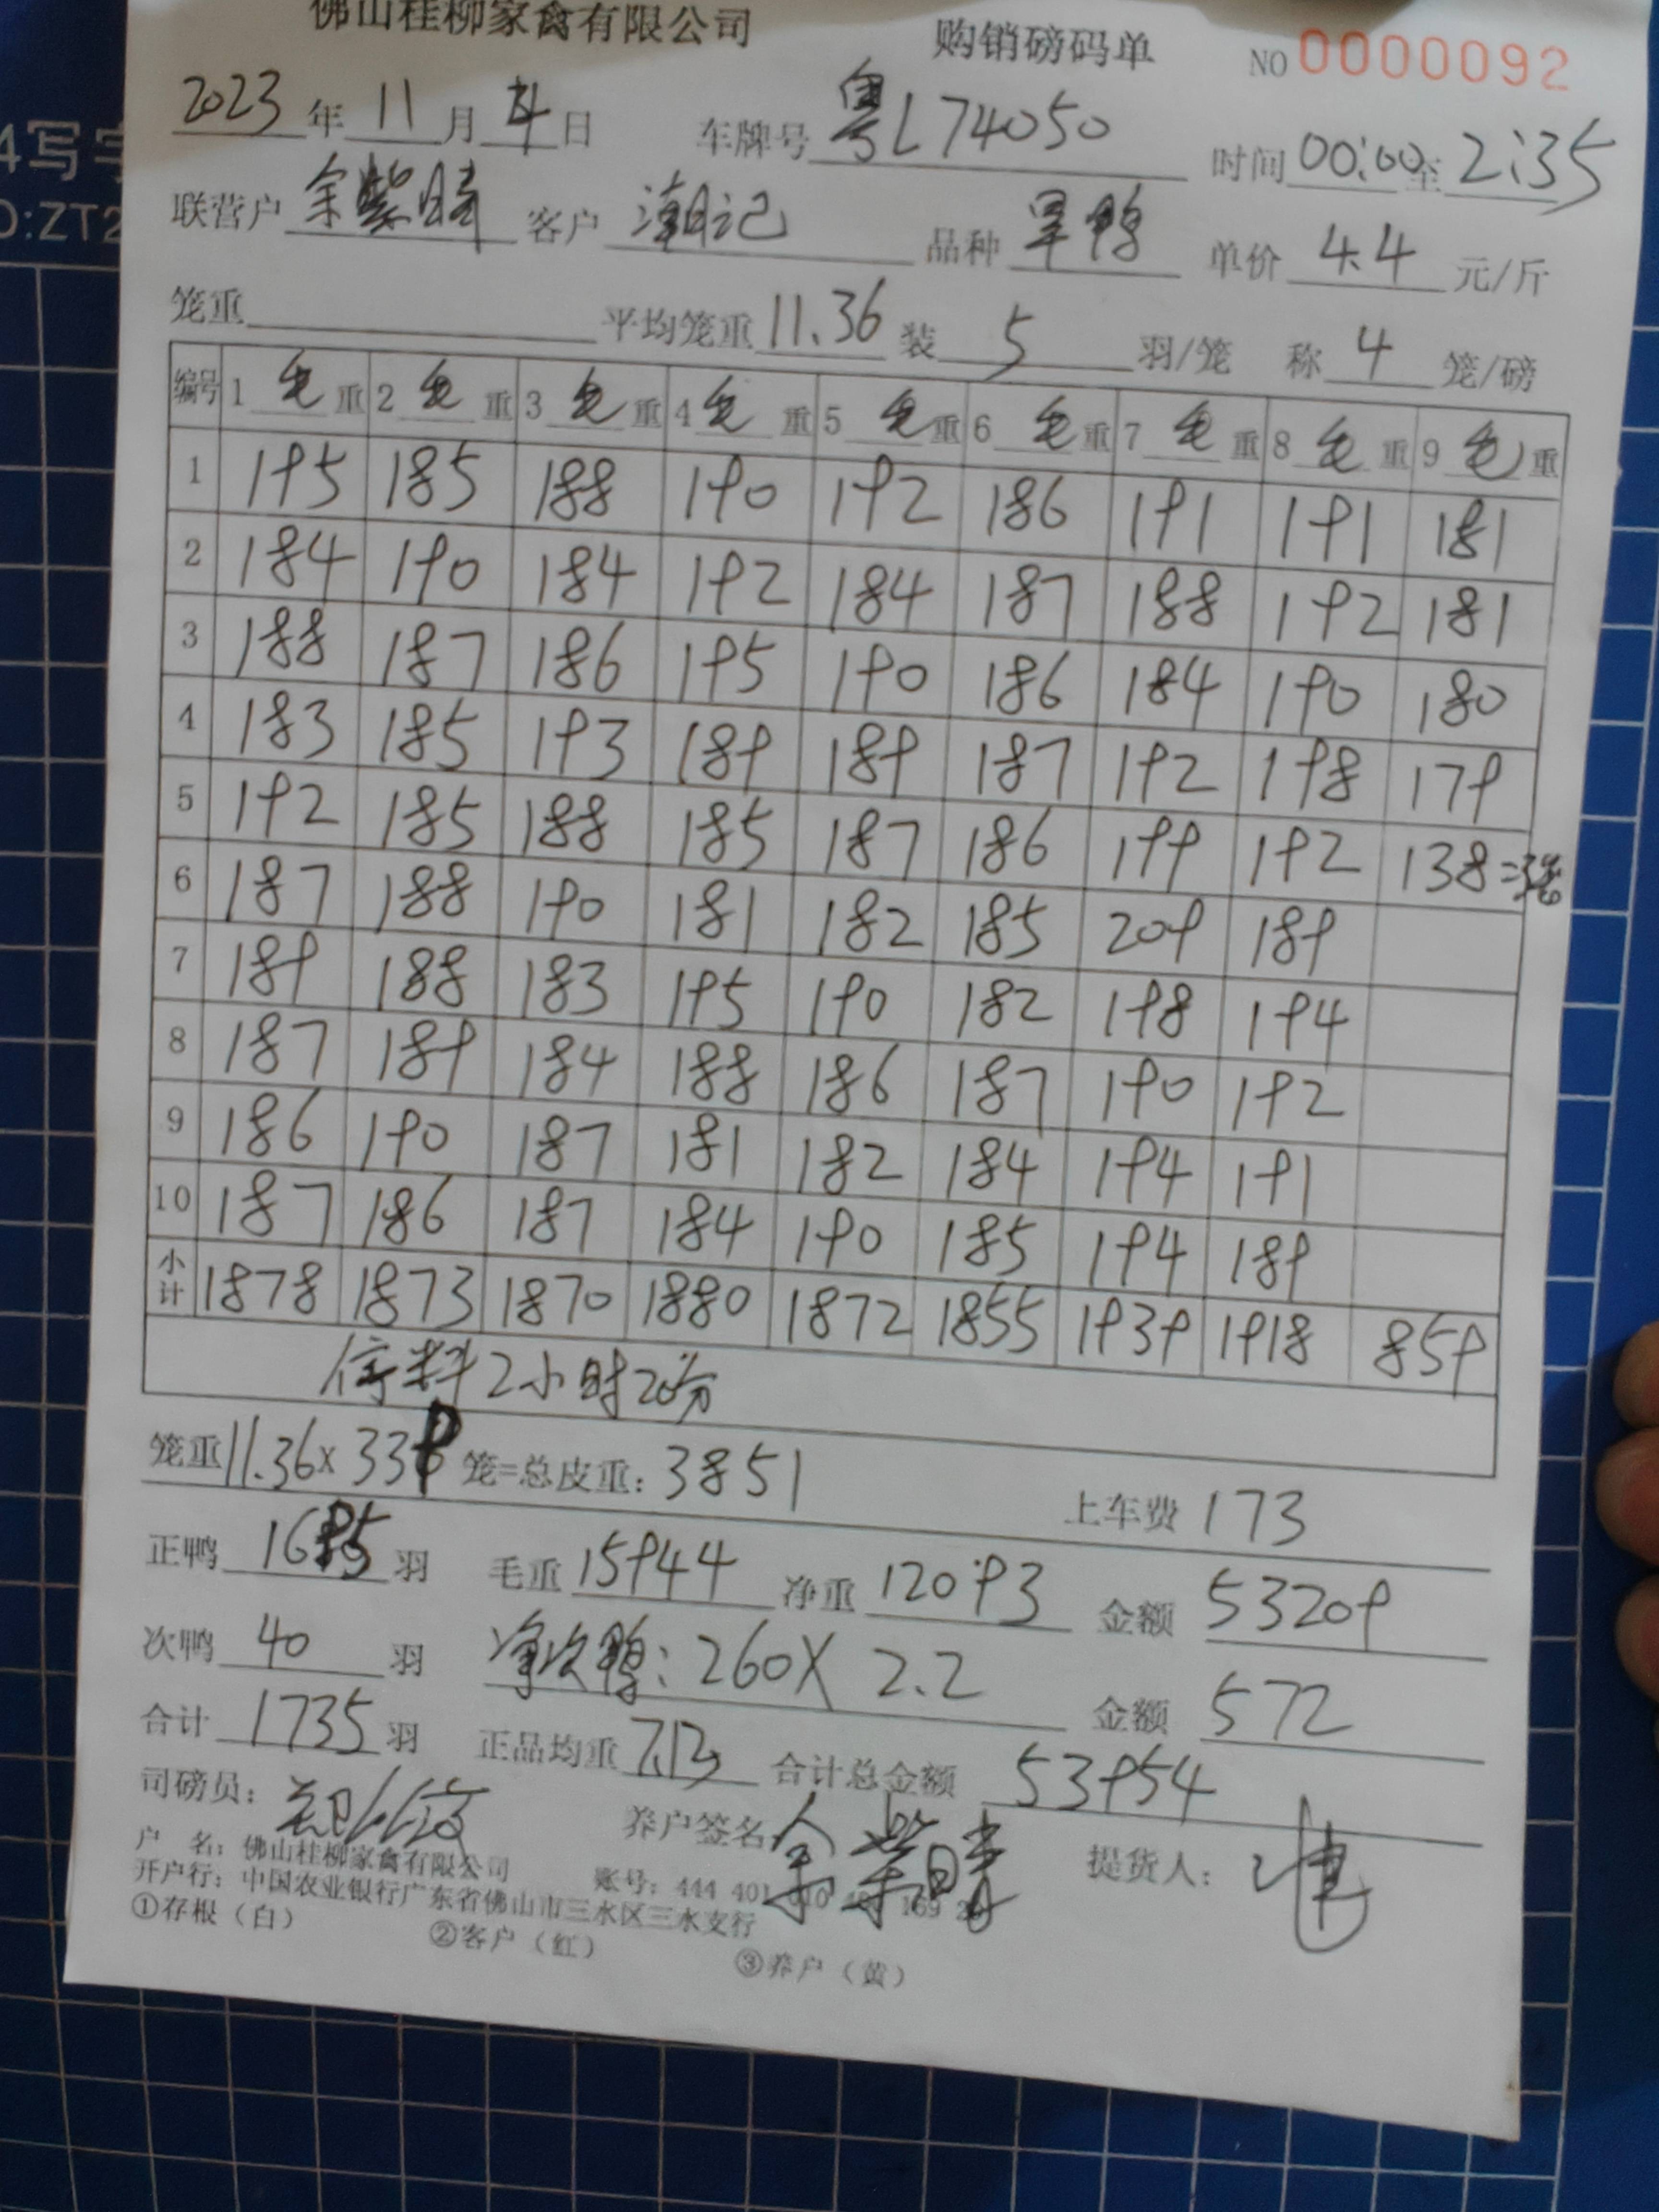 佛山桂柳家禽有限公司 购销磅码单 NO 0000092
2023年11月4日 车牌号 粤L74050 时间 00:00至2:35
联营户 余紫晴 客户 潮记 品种 旱鸭 单价 4.4 元/斤
笼重 平均笼重 11.36 装 5 羽/笼 称 4 笼/磅
编号 1 毛重 2 毛重 3 毛重 4 毛重 5 毛重 6 毛重 7 毛重 8 毛重 9 毛重
1 195 185 188 190 192 186 191 191 181
2 184 190 184 192 184 187 188 192 181
3 188 187 186 195 190 186 184 190 180
4 183 185 193 189 189 187 192 198 179
5 192 185 188 185 187 186 199 192 138=3笼
6 187 188 190 181 182 185 209 189
7 189 188 183 195 190 182 198 194
8 187 189 184 188 186 187 190 192
9 186 190 187 181 182 184 194 191
10 187 186 187 184 190 185 194 189
小计 1878 1873 1870 1880 1872 1855 1939 1918 859
停料2小时20分
笼重 11.36×339 笼=总皮重: 3851 上车费 173
正鸭 1695 羽 毛重 15944 净重 12093 金额 53209
次鸭 40 羽 净次鸭: 260X 2.2 金额 572
合计 1735 羽 正品均重 7.13 合计总金额 53954
司磅员: 养户签名: 余紫晴 提货人:
户 名: 佛山桂柳家禽有限公司 账号: 444 401
开户行: 中国农业银行广东省佛山市三水区三水支行
①存根(白) ②客户(红) ③养户(黄)
4写字